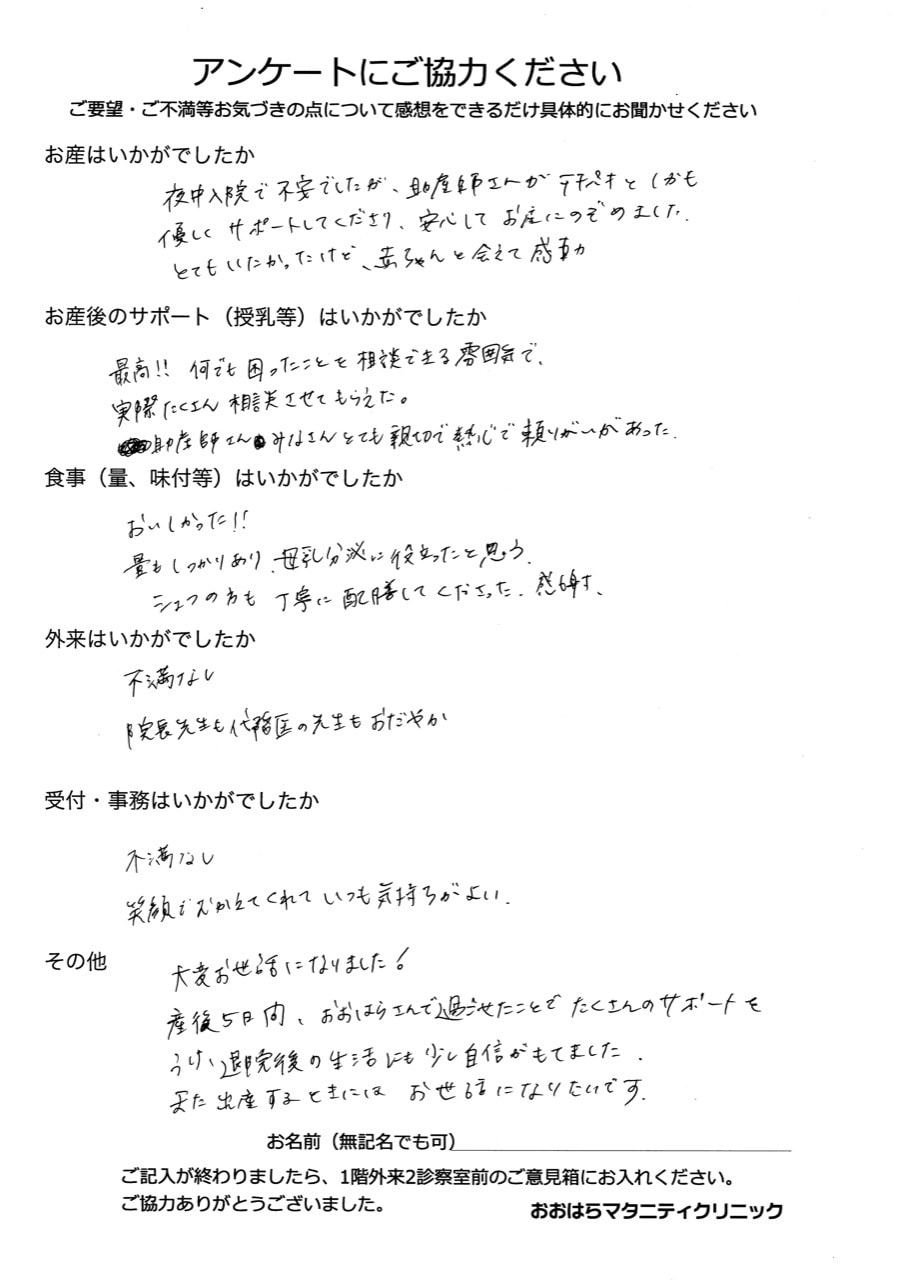 アンケートにご協力ください
ご要望・ご不満等お気づきの点について感想をできるだけ具体的にお聞かせください
お産はいかがでしたか
夜中入院で不安でしたが、助産師さんがテキパキとしかも
優しくサポートしてくださり、安心してお産にのぞめました。
とてもいたかったけど、赤ちゃんと会えて感動
お産後のサポート（授乳等）はいかがでしたか
最高!! 何でも困ったことを相談できる雰囲気で、
実際たくさん相談させてもらえた。
助産師さんみなさんとても親切で熱心で頼りがいがあった。
食事（量、味付等）はいかがでしたか
おいしかった!!
量もしっかりあり、母乳分泌に役立ったと思う。
シェフの方も丁寧に配膳してくださった。感謝。
外来はいかがでしたか
不満なし
院長先生も代務医の先生もおだやか
受付・事務はいかがでしたか
不満なし
笑顔でむかえてくれていつも気持ちがよい。
その他
大変お世話になりました!
産後5日間、おおはらさんで過ごせたことでたくさんのサポートを
うけ、退院後の生活にも少し自信がもてました。
また出産するときにはお世話になりたいです。
お名前（無記名でも可）
ご記入が終わりましたら、1階外来2診察室前のご意見箱にお入れください。
ご協力ありがとうございました。
おおはらマタニティクリニック